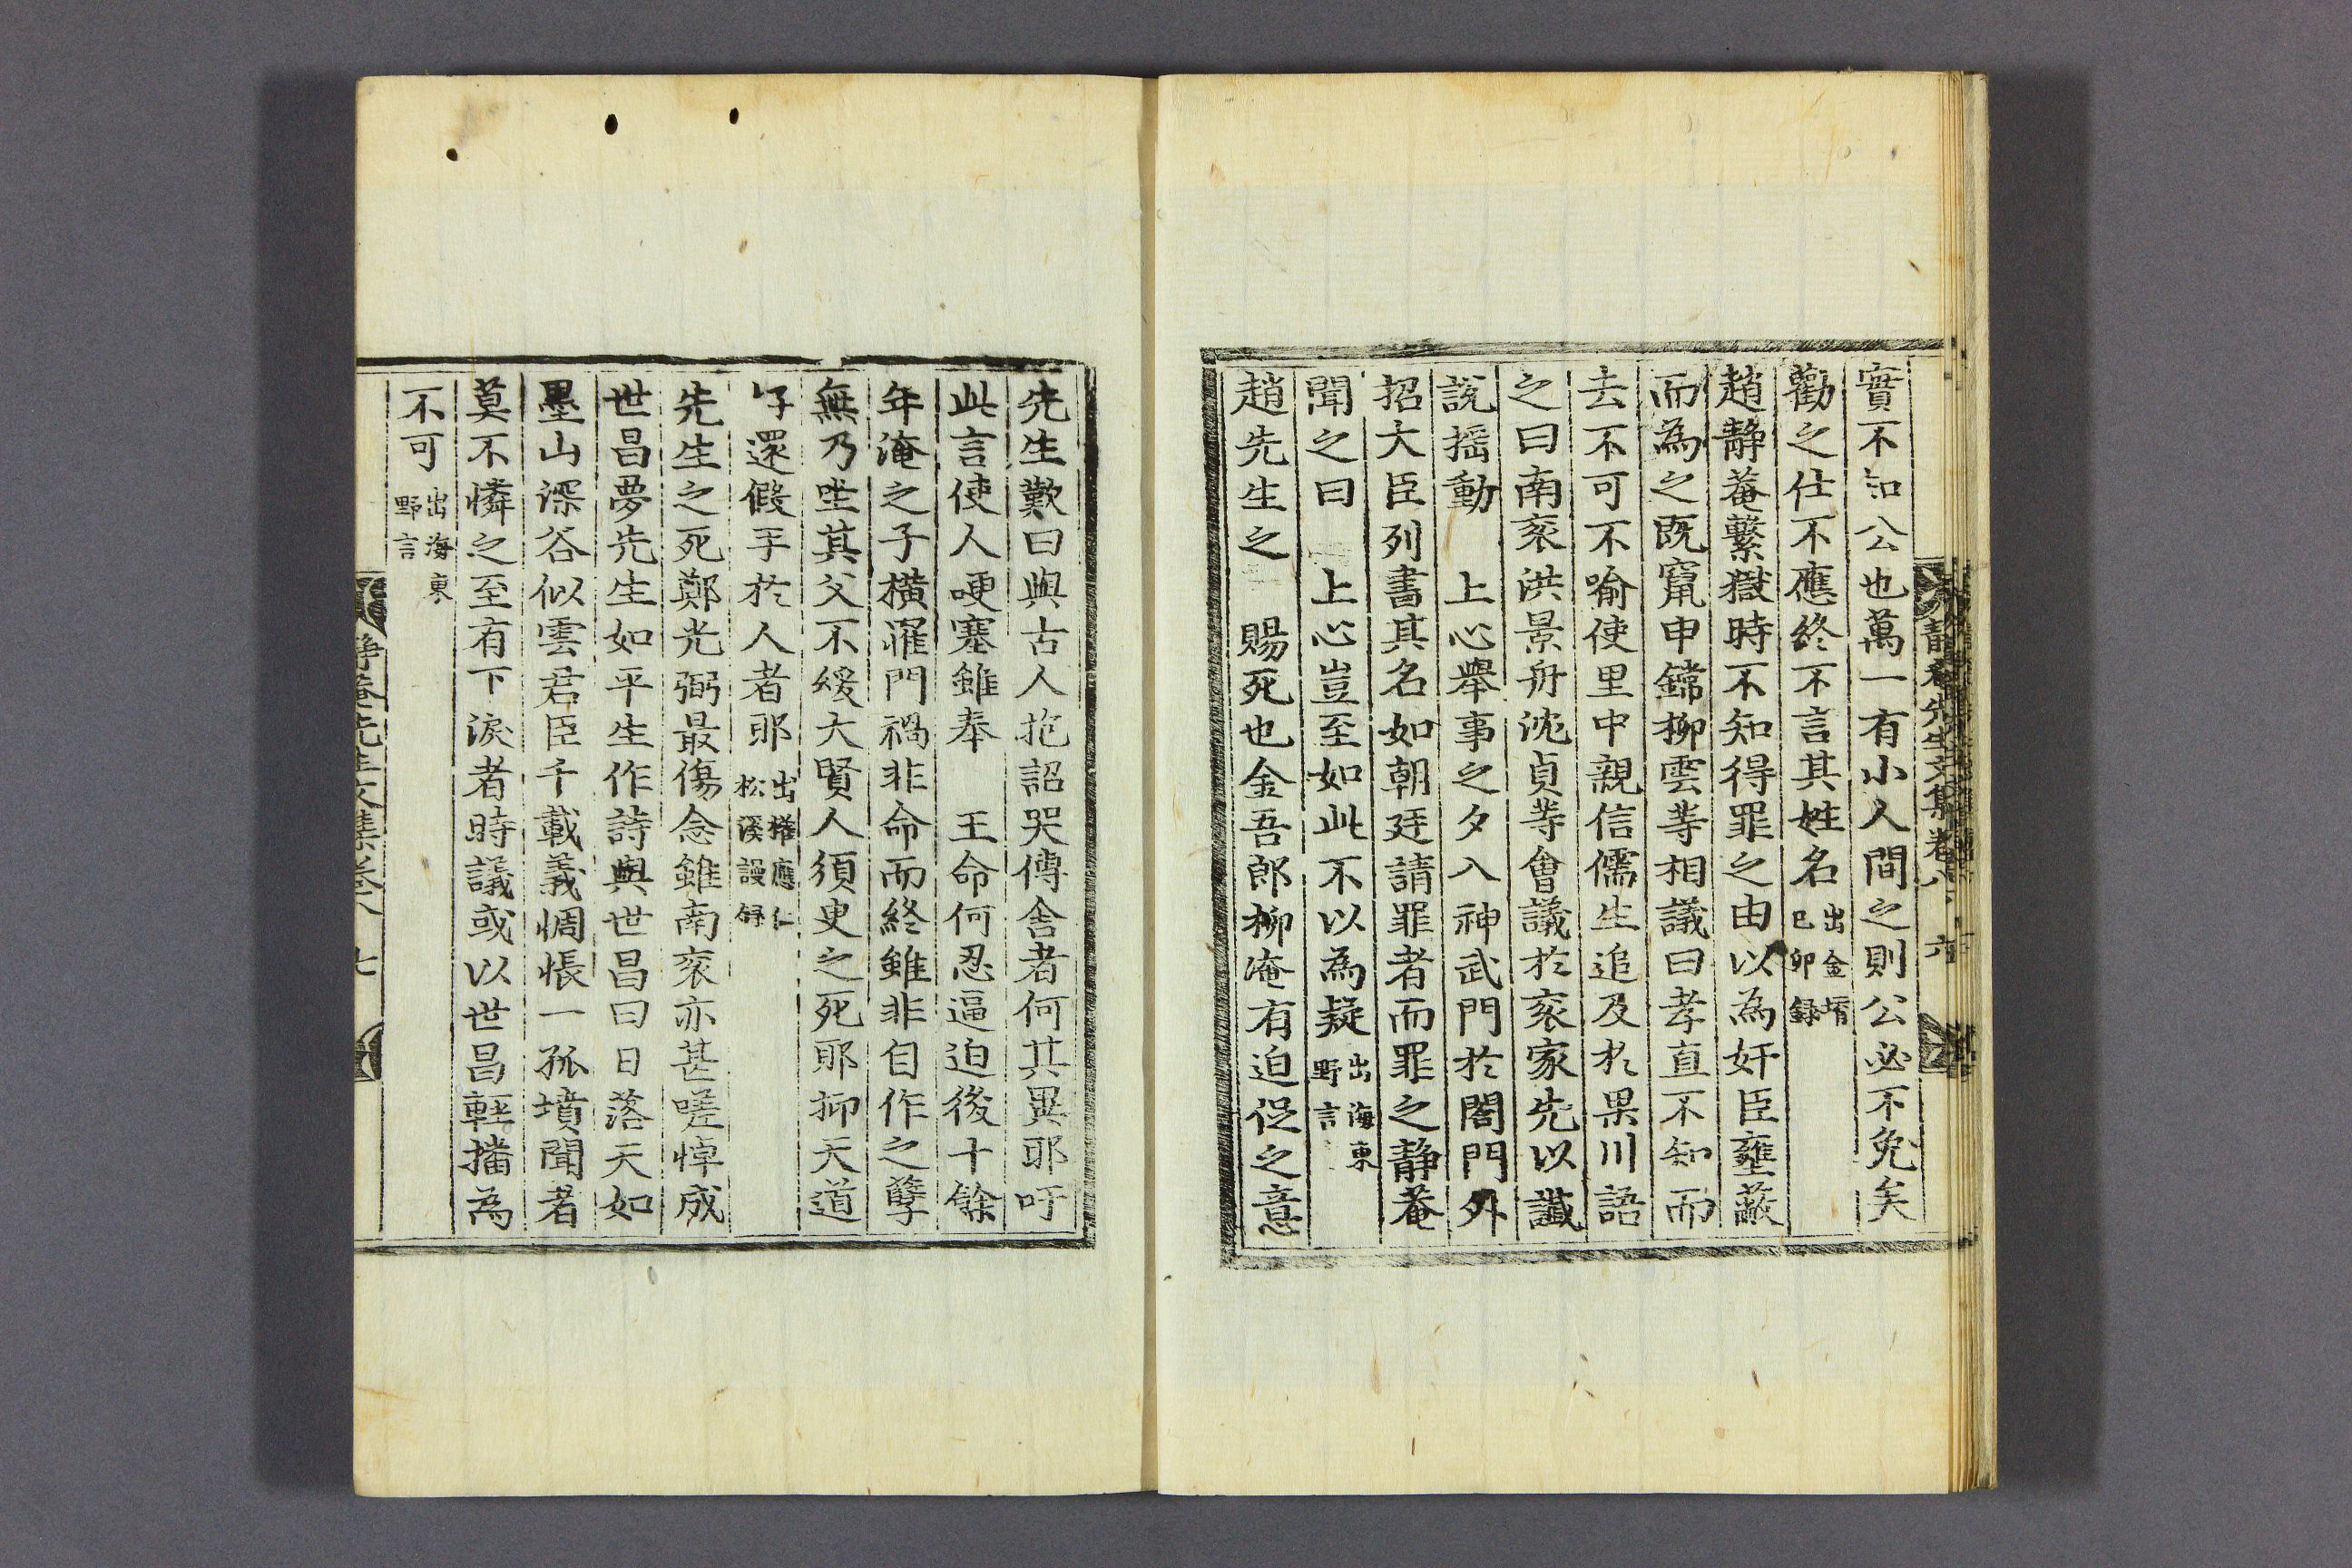 實不知公也萬一有小人間之則公必不免矣
勸之仕不應終不言其姓名出金堉己卯錄
趙靜菴繫獄時不知得罪之由以為奸臣壅蔽
而為之既竄申鏛柳雲等相議曰孝直不知而
去不可不喻使里中親信儒生追及於果川語
之曰南袞洪景舟沈貞等會議於袞家先以讖
說搖動 上心舉事之夕入神武門於閤門外
招大臣列書其名如朝廷請罪者而罪之靜菴
聞之曰 上心豈至如此不以為疑出海東野言
趙先生之 賜死也金吾郎柳淹有迫促之意
靜菴先生文集卷八 六
先生歎曰與古人抱詔哭傳舍者何其異耶吁
此言使人哽塞雖奉 王命何忍逼迫後十餘
年淹之子橫罹門禍非命而終雖非自作之孼
無乃坐其父不緩大賢人須臾之死耶抑天道
好還假手於人者耶出權應仁松溪謾錄
先生之死鄭光弼最傷念雖南袞亦甚嗟悼成
世昌夢先生如平生作詩與世昌曰日落天如
墨山深谷似雲君臣千載義惆悵一孤墳聞者
莫不憐之至有下淚者時議或以世昌輕播為
不可出海東野言
靜菴先生文集卷八 七